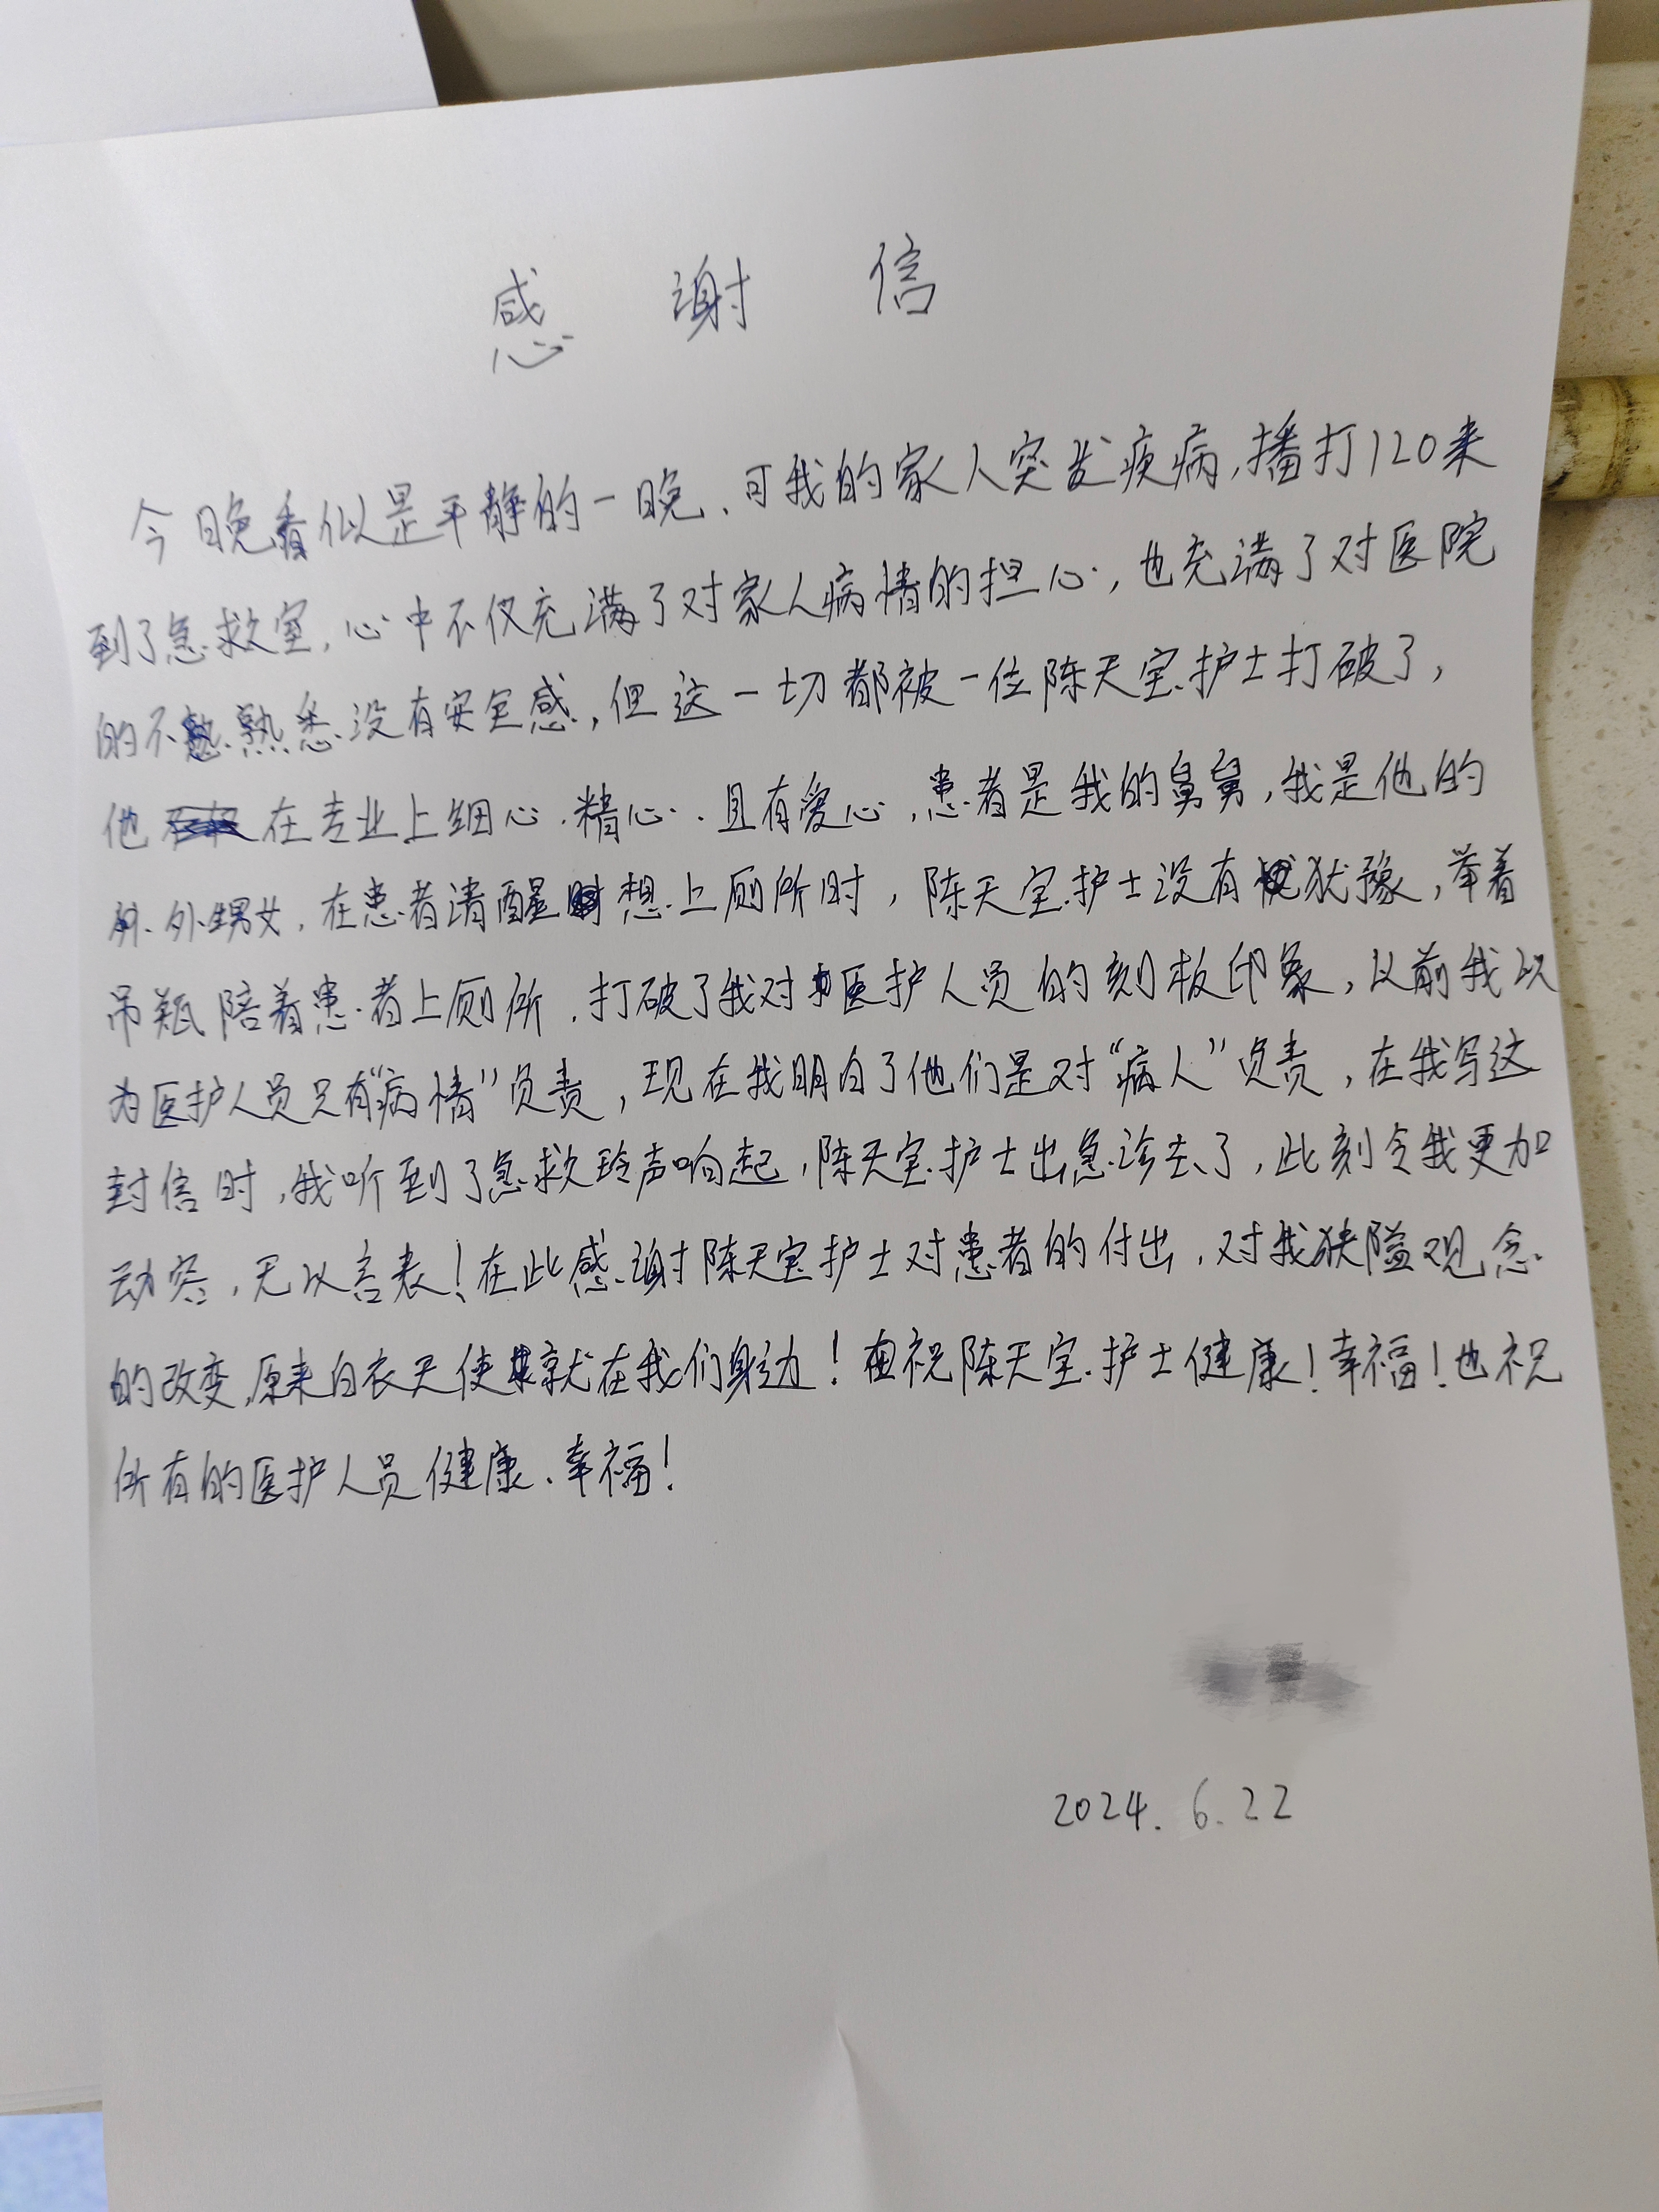 感谢信
今日晚看似是平静的一晚、可我的家人突发疾病,播打120来
到了急救室,心中不仅充满了对家人病情的担心,也充满了对医院
的不熟悉没有安全感,但这一切都被一位陈天宝护士打破了,
他在专业上细心.精心.且有爱心,患者是我的舅舅,我是他的
外甥女,在患者清醒想上厕所时,陈天宝护士没有犹豫,举着
吊瓶陪着患者上厕所,打破了我对医护人员的刻板印象,以前我以
为医护人员只有“病情”负责,现在我明白了他们是对“病人”负责,在我写这
封信时,我听到了急救玲声响起,陈天宝护士出急诊去了,此刻令我更加
动容,无以言表!在此感谢陈天宝护士对患者的付出,对我狭隘观念
的改变,原来白衣天使就在我们身边!祝陈天宝护士健康!幸福!也祝
所有的医护人员健康、幸福!
2024.6.22